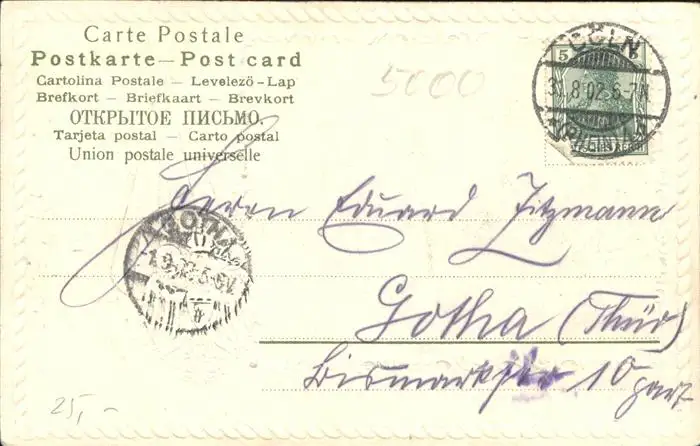 Carte Postale
Postkarte — Post card
Cartolina Postale — Levelező-Lap
Brefkort — Briefkaart — Brevkort
ОТКРЫТОЕ ПИСЬМО.
Tarjeta postal — Carto postal
Union postale universelle
5000
CÖLN
5
8.02.6-7N
Herrn Eduard Jitzmann
GOTHA
1.9.02.5-6V.
b
Gotha (Thür)
Bismarckstr 10
part
25,-